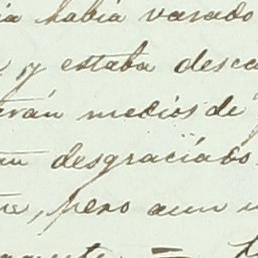 ia habia varado
y estaba desca
trán medios de
an desgraciado
te, pero aun